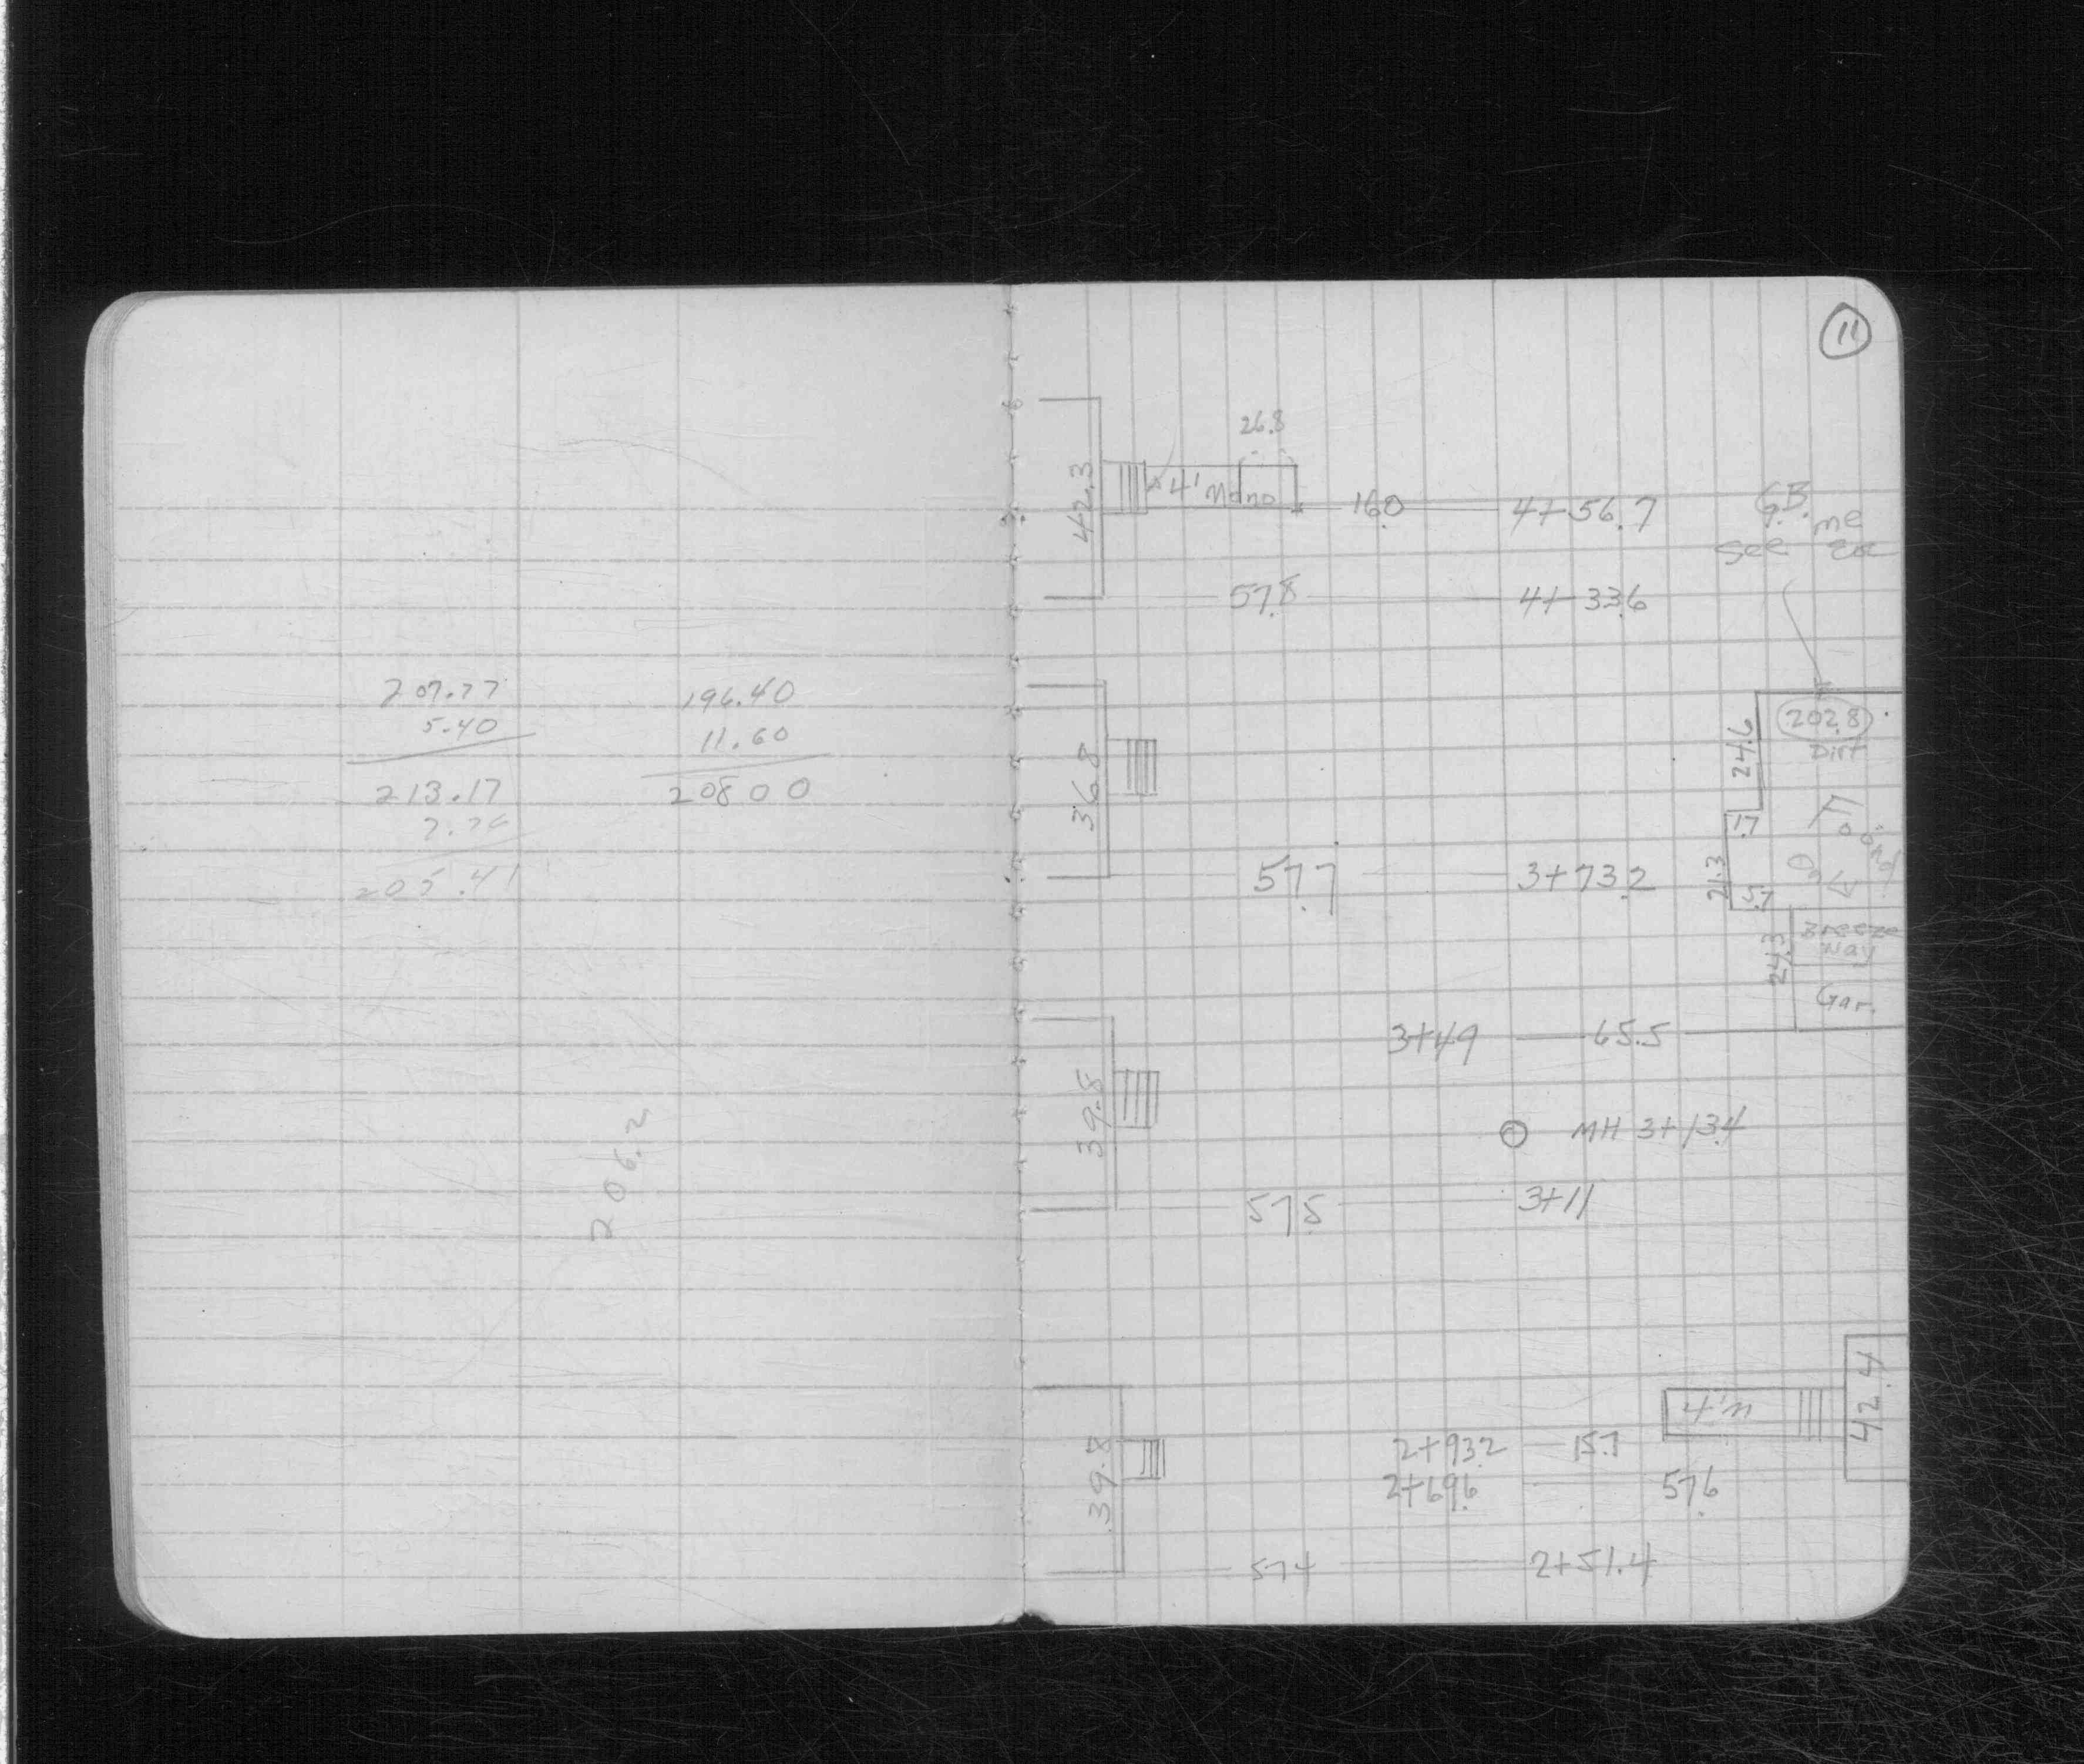 207.77
5.40
213.17
7.76
205.41
196.40
11.60
208 00
206.2
11
26.8
42.3
4' Mono
16.0
4+56.7
G.B.
see me
57.8
4+33.6
36.8
24.6
202.8
Dirt
1.7
57.7
3+73.2
21.3
5.7
Found
Breeze
Way
24.3
Gar.
3+49
65.5
39.5
MH 3+13.4
57.5
3+11
42.4
4' M
39.8
2+93.2
15.7
2+69.6
57.6
57.4
2+51.4